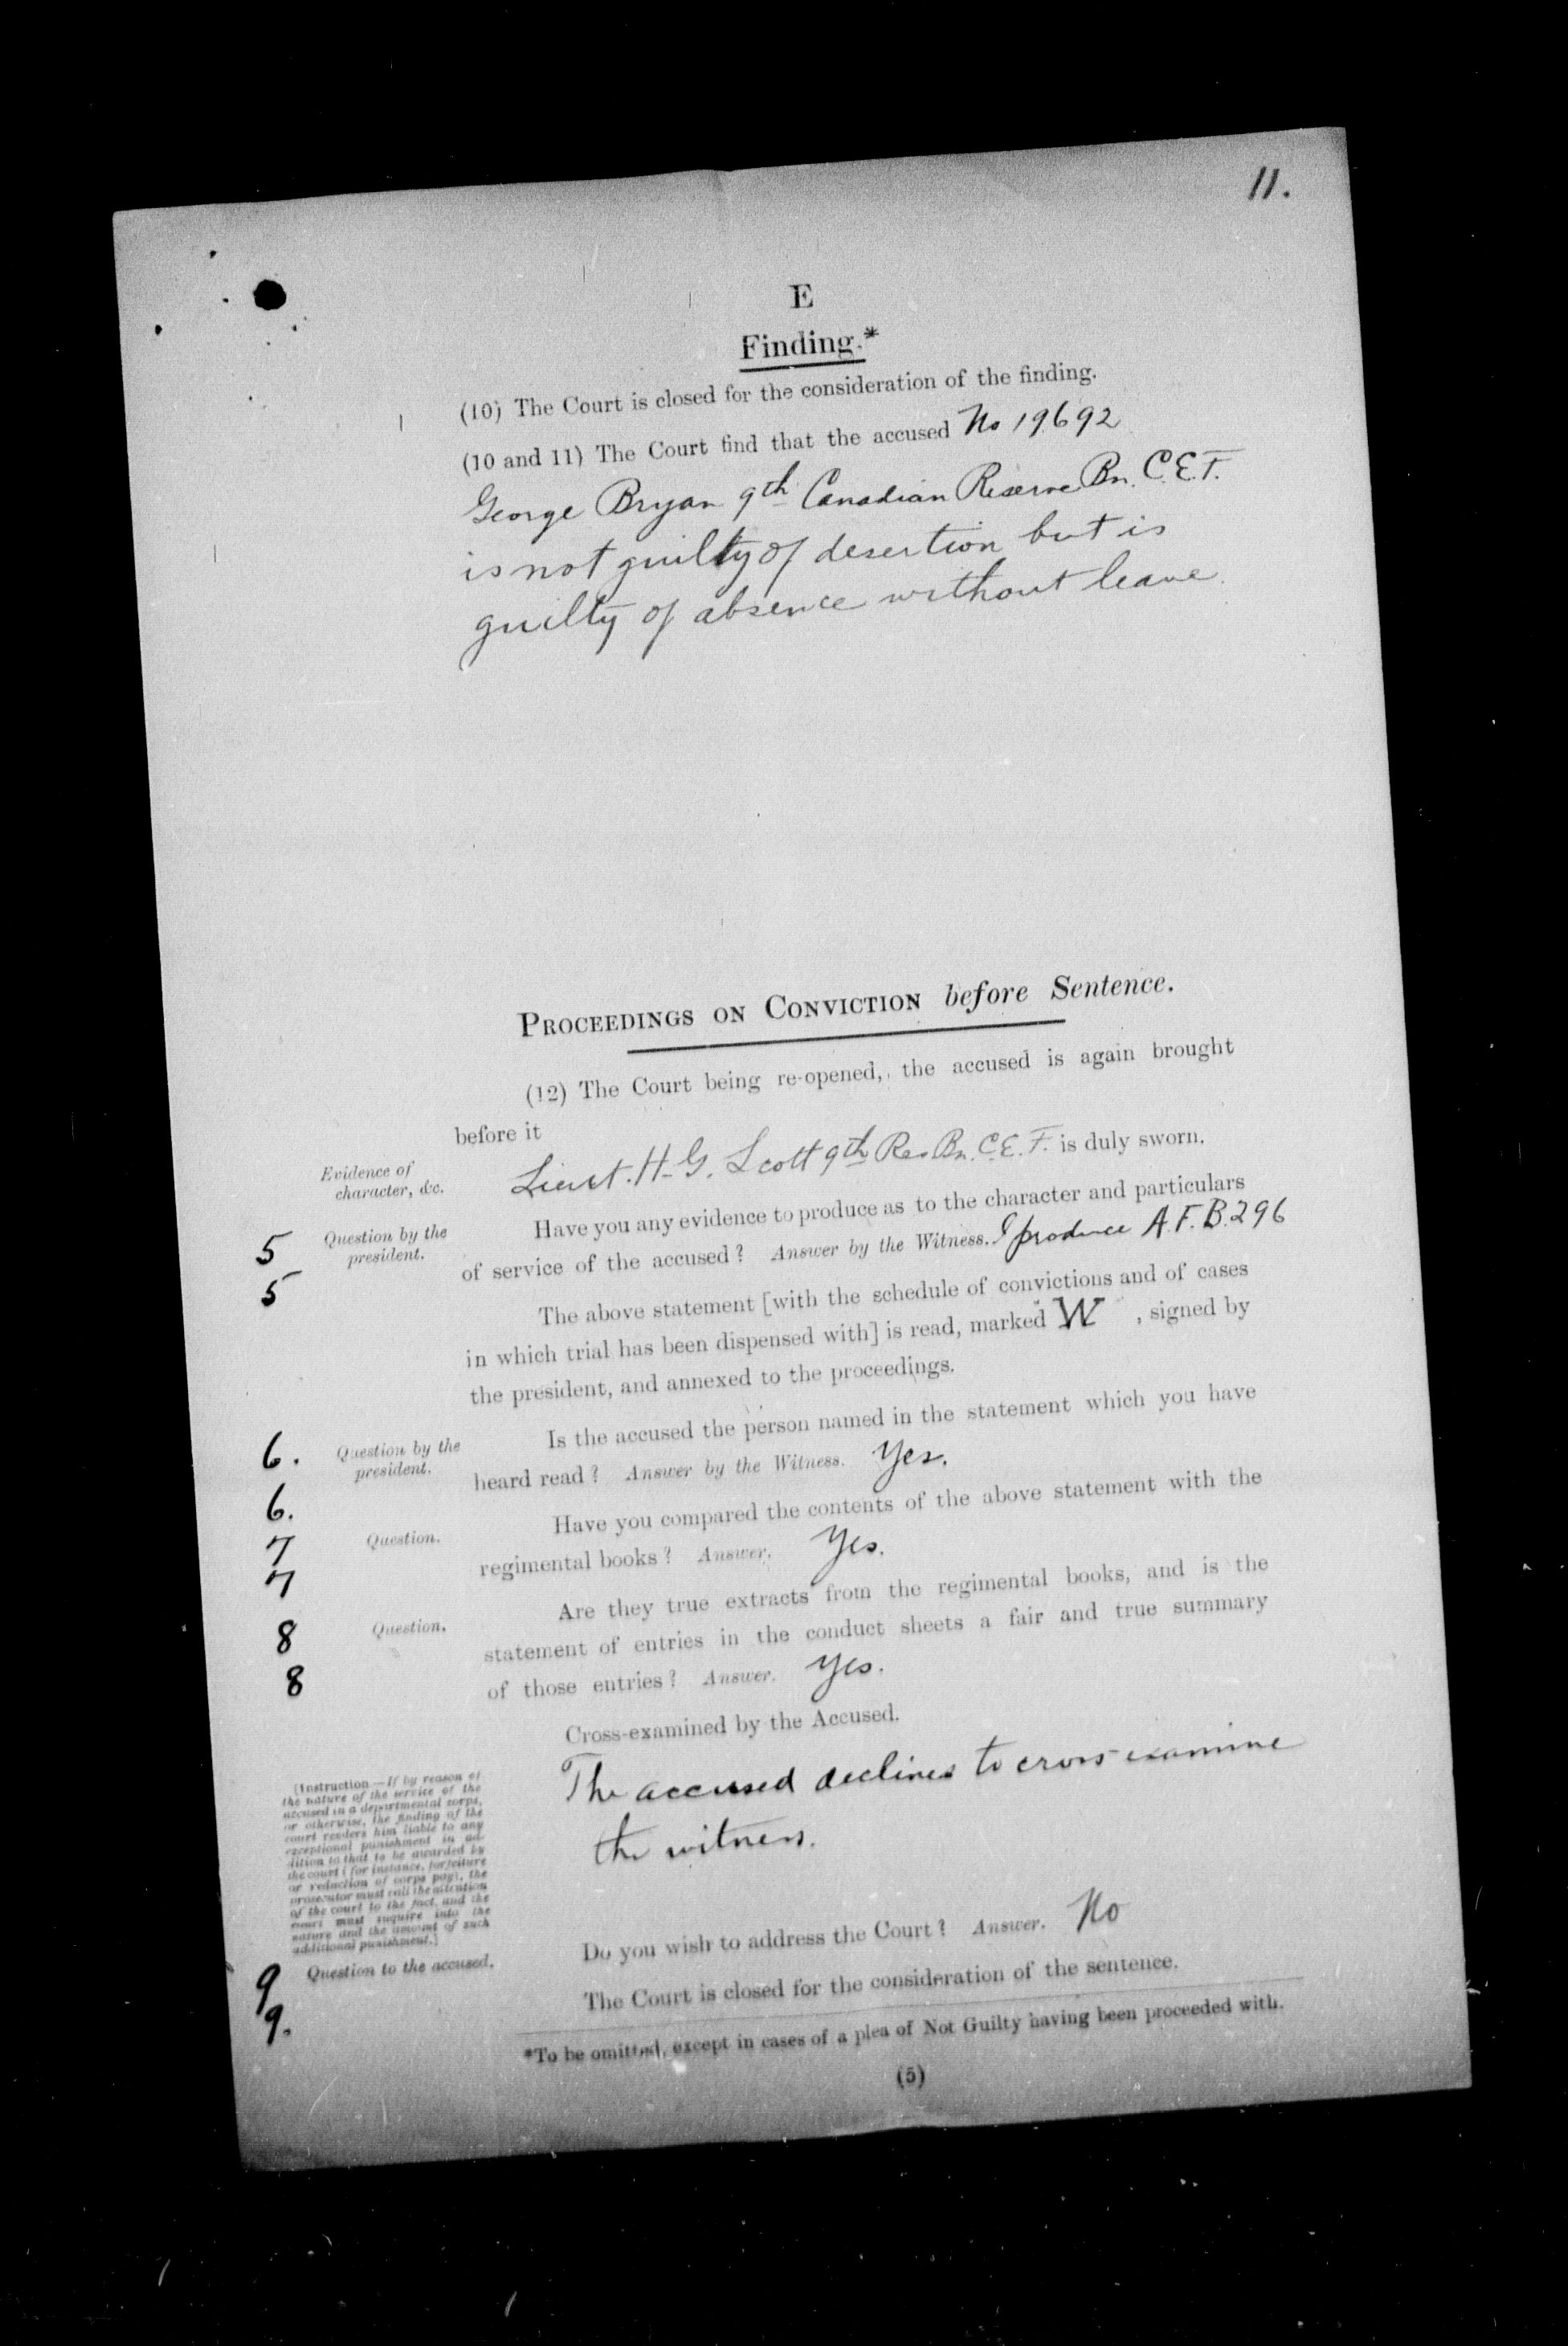 11.
E
Finding.*
(10) The Court is closed for the consideration of the finding.
(10 and 11) The Court find that the accused No 19692
George Bryan 9th Canadian Reserve Bn. C.E.F.
is not guilty of desertion but is
guilty of absence without leave.
PROCEEDINGS ON CONVICTION before Sentence.
(12) The Court being re-opened, the accused is again brought
before it
Evidence of
character, &c.
Lieut. H. G. Scott 9th Res Bn. C.E.F. is duly sworn.
5 Question by the
president.
Have you any evidence to produce as to the character and particulars
5 of service of the accused? Answer by the Witness. I produce A.F.B.296
The above statement [with the schedule of convictions and of cases
in which trial has been dispensed with] is read, marked "W", signed by
the president, and annexed to the proceedings.
6. Question by the
president.
Is the accused the person named in the statement which you have
6. heard read? Answer by the Witness. Yes.
7 Question.
Have you compared the contents of the above statement with the
7 regimental books? Answer. Yes.
8 Question.
Are they true extracts from the regimental books, and is the
statement of entries in the conduct sheets a fair and true summary
8 of those entries? Answer. Yes.
Cross-examined by the Accused.
The accused declines to cross-examine
the witness.
[Instruction.—If by reason of
the nature of the service of the
accused in a departmental corps,
or otherwise, the finding of the
court renders him liable to any
exceptional punishment in ad-
dition to that to be awarded by
the court (for instance, forfeiture
or reduction of corps pay), the
prosecutor must call the attention
of the court to the fact, and the
court must inquire into the
nature and the amount of such
additional punishment.]
9 Question to the accused.
9. Do you wish to address the Court? Answer. No
The Court is closed for the consideration of the sentence.
*To be omitted, except in cases of a plea of Not Guilty having been proceeded with.
(5)